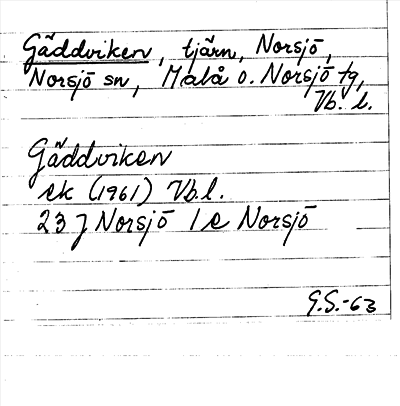 Gäddviken, tjärn, Norsjö,
Norsjö sn, Malå o. Norsjö tg,
Vb. l.
Gäddviken
ek (1961) Vb.l.
23 J Norsjö 1 e Norsjö
G.S.-63